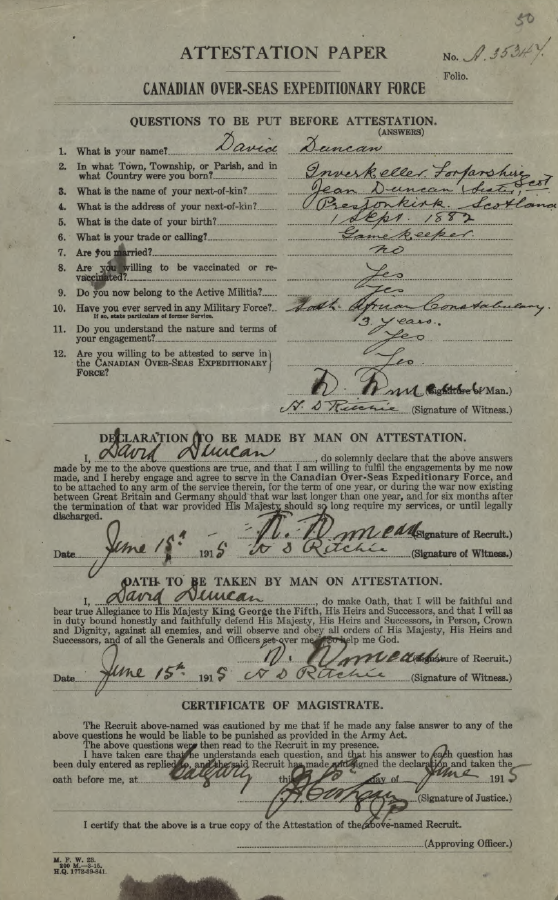 50
ATTESTATION PAPER
No. A.35247.
Folio.
CANADIAN OVER-SEAS EXPEDITIONARY FORCE
QUESTIONS TO BE PUT BEFORE ATTESTATION.
(ANSWERS)
1. What is your name? David Duncan
2. In what Town, Township, or Parish, and in
what Country were you born? Inverkeller, Forfarshire Scot
3. What is the name of your next-of-kin? Jean Duncan (Sister)
4. What is the address of your next-of-kin? Prestonkirk. Scotland
5. What is the date of your birth? 1 Sept. 1882
6. What is your trade or calling? Gamekeeper
7. Are you married? no
8. Are you willing to be vaccinated or re-
vaccinated? Yes
9. Do you now belong to the Active Militia? Yes
10. Have you ever served in any Military Force? South African Constabulary.
If so, state particulars of former Service. 3 years.
11. Do you understand the nature and terms of
your engagement? Yes
12. Are you willing to be attested to serve in
the CANADIAN OVER-SEAS EXPEDITIONARY Yes.
FORCE?
D. Duncan (Signature of Man.)
A. D Ritchie (Signature of Witness.)
DECLARATION TO BE MADE BY MAN ON ATTESTATION.
I, David Duncan, do solemnly declare that the above answers
made by me to the above questions are true, and that I am willing to fulfil the engagements by me now
made, and I hereby engage and agree to serve in the Canadian Over-Seas Expeditionary Force, and
to be attached to any arm of the service therein, for the term of one year, or during the war now existing
between Great Britain and Germany should that war last longer than one year, and for six months after
the termination of that war provided His Majesty should so long require my services, or until legally
discharged.
D. Duncan (Signature of Recruit.)
Date June 15th 1915 A D Ritchie (Signature of Witness.)
OATH TO BE TAKEN BY MAN ON ATTESTATION.
I, David Duncan, do make Oath, that I will be faithful and
bear true Allegiance to His Majesty King George the Fifth, His Heirs and Successors, and that I will as
in duty bound honestly and faithfully defend His Majesty, His Heirs and Successors, in Person, Crown
and Dignity, against all enemies, and will observe and obey all orders of His Majesty, His Heirs and
Successors, and of all the Generals and Officers set over me. So help me God.
D. Duncan (Signature of Recruit.)
Date June 15th 1915 A D Ritchie (Signature of Witness.)
CERTIFICATE OF MAGISTRATE.
The Recruit above-named was cautioned by me that if he made any false answer to any of the
above questions he would be liable to be punished as provided in the Army Act.
The above questions were then read to the Recruit in my presence.
I have taken care that he understands each question, and that his answer to each question has
been duly entered as replied to, and the said Recruit has made and signed the declaration and taken the
oath before me, at Calgary this 15th day of June 1915
J.P. (Signature of Justice.)
I certify that the above is a true copy of the Attestation of the above-named Recruit.
(Approving Officer.)
M. F. W. 23.
200 M.—3-15.
H.Q. 1772-39-841.